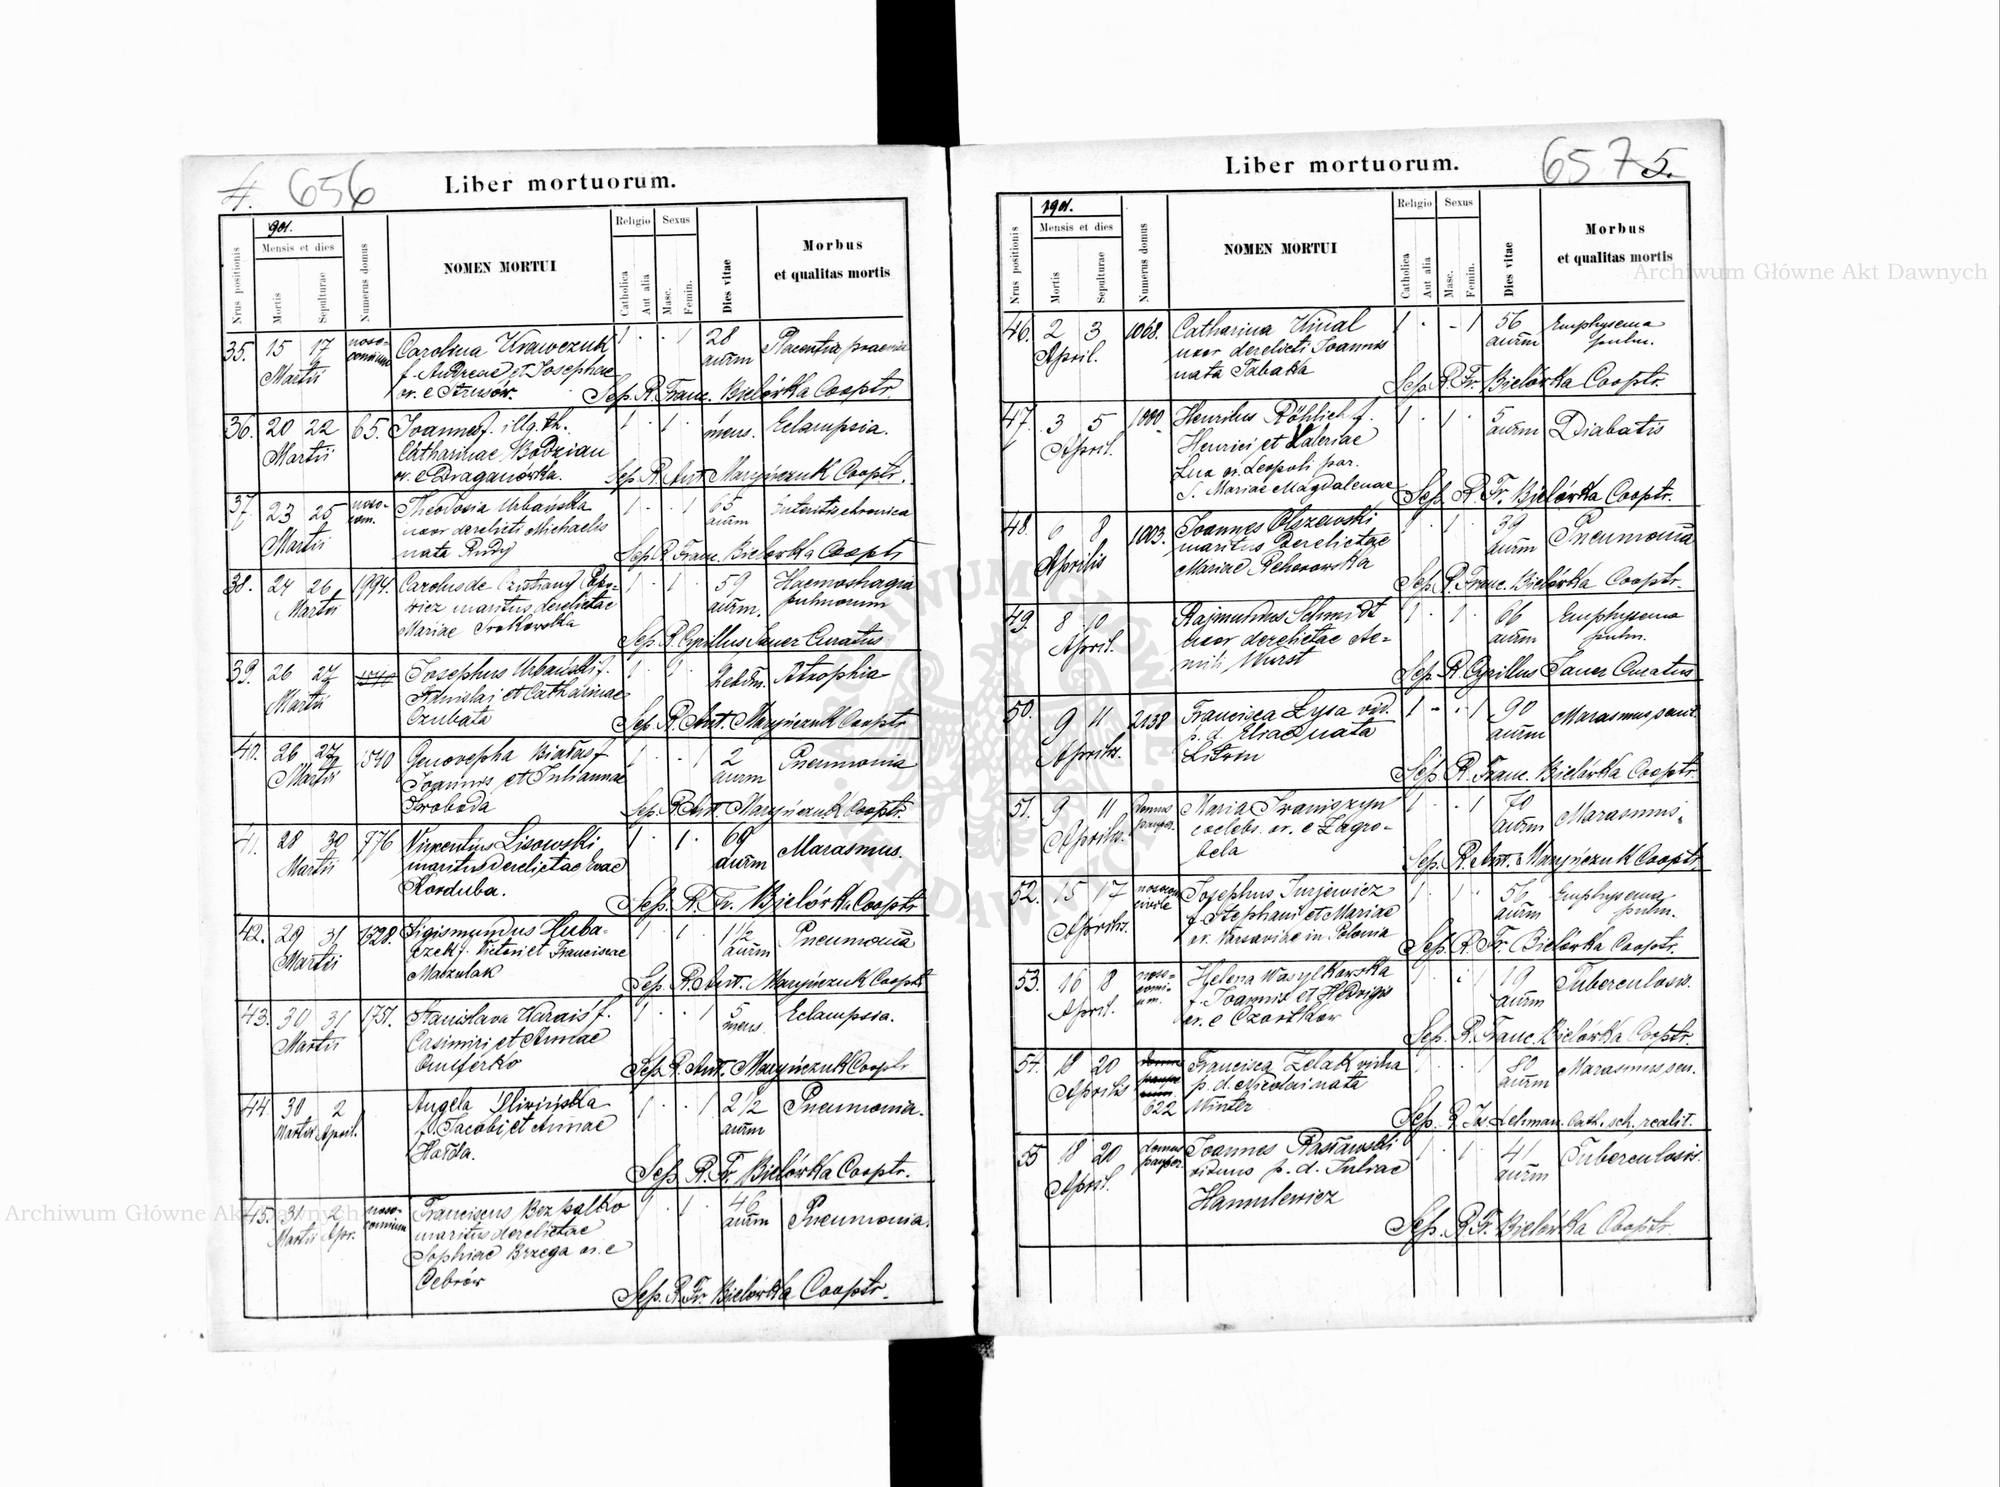 4. 656
Liber mortuorum.
901.
Nrus positionis
Mensis et dies
Mortis
Sepulturae
Numerus domus
NOMEN MORTUI
Religio
Catholica
Aut alia
Sexus
Masc.
Femin.
Dies vitae
Morbus
et qualitas mortis
35. 15 17 Martii noso-
comium Carolina Krawczuk 1 · · 1 28
f. Andreae et Josephae annm
or. e Strusów. Sep. R. Franc. Bielówka Cooptr.
36. 20 22 65. Joannes f. illg. th. 1 · 1 · 1 Eclampsia.
Martii Catharinae Bodzian mens.
or. e Draganówka. Sep. R. Ant. Maryńczuk Cooptr.
37. 23 25 noso- Theodosia Urbańska 1 · · 1 65 Enteritis chronica
Martii com. uxor derelicti Michaelis annm
nata Rudy Sep. R. Franc. Bielówka Cooptr
38. 24 26 1994. Carolus de 1 · 1 · 59 Haemorhagia
Martii maritus derelictae annm. pulmonum
Mariae Sep. R. Cyrillus Sauer Curatus
39. 26 27 Josephus Urbański f. 1 · 1 · 2 Atrophia
Martii Stanislai et Catharinae
Czubata Sep. R. Ant. Maryńczuk Cooptr
40. 26 27 1540 Genovepha Białas f 1 · · 1 2 Pneumonia
Martii Joannis et Juliannae annm
Swoboda Sep. R. Ant. Maryńczuk Cooptr.
41. 28 30 776 Vincentius Lisowski 1 · 1 · 69 Marasmus.
Martii maritus derelictae Evae annm
Korduba. Sep. R. Fr. Bielówka Cooptr
42. 29 31 1328. Sigismundus Huba- 1 · 1 · 1 1/2 Pneumonia
Martii czek f. Victori et Franciscae annm
Maczulak Sep. R. Ant. Maryńczuk Cooptr
43. 30 31 1751. Stanislava Karaiś f. 1 · · 1 5 Eclampsia.
Martii Casimiri et Annae mens.
Onuferko Sep. R. Ant. Maryńczuk Cooptr
44. 30 2 Angela Śliwińska 1 · · 1 2 1/2 Pneumonia.
Martii April. f. Jacobi et Annae annm
Hołda. Sep. R. Fr. Bielówka Cooptr.
45. 31 2 noso- Franciscus Bezpalko 1 · 1 · 46 Pneumonia.
Martii Apr. comium maritus derelictae annm
Sophiae Brzega or. e
Cebrów Sep. R. Fr. Bielówka Cooptr.
657 5.
Liber mortuorum.
1901.
Nrus positionis
Mensis et dies
Mortis
Sepulturae
Numerus domus
NOMEN MORTUI
Religio
Catholica
Aut alia
Sexus
Masc.
Femin.
Dies vitae
Morbus
et qualitas mortis
46. 2 3 1068. Catharina Kinal 1 · - 1 56 Emphysema
April. uxor derelicti Joannis annm pulm.
nata Tabaka Sep. R. Fr. Bielówka Cooptr.
47. 3 5 Henrikus Röhlich f. 1 · 1 · 5 Diabatis
April. Henrici et Valeriae annm
or. Leopoli par.
S. Mariae Magdalenae Sep. R. Fr. Bielówka Cooptr.
48. 6 8 1003. Joannes Olszewski 1 · 1 · 39 Pneumonia
Aprilis maritus derelictae annm
Mariae Rehorowska Sep. R. Franc. Bielówka Cooptr.
49. 8 10 Rajmundus Schmidt 1 · 1 · 66 Emphysema
April. uxor derelictae Ae- annm pulm.
mili Wurst Sep. R. Cyrillus Sauer Curatus
50. 9 11 2138 Francisca Łysa vid. 1 - · 1 90 Marasmus sent.
Aprilis. p. d. Eliae nata annm
Litwin Sep. R. Franc. Bielówka Cooptr.
51. 9 11 domus Maria Iwaniszyn 1 · · 1 70 Marasmus.
Aprilis. pauper. coelebs. or. e Zagro- annm
bela Sep. R. Ant. Maryńczuk Cooptr
52. 15 17 Josephus Jurjewicz 1 · 1 · 56 Emphysema
Aprilis. f. Stephani et Mariae annm pulm.
or. Varsaviae in Polonia Sep. R. Fr. Bielówka Cooptr.
53. 16 8 noso- Helena Wasylkowska 1 · · 1 19 Tuberculosis.
April. comi- f. Joannis et Hedvigis annm
um. or. e Czortkow Sep. R. Franc. Bielówka Cooptr.
54. 18 20 Francisca Żelak vidua 1 · · 1 80 Marasmus sen.
Aprilis p. d. Nicolai nata annm
622 Winter Sep. R. Jos. Lehman. Cath. sch. realit.
55 18 20 domus Joannes Rasławski 1 · 1 · 41 Tuberculosis.
April. pauper. viduus p. d. Juliae annm
Hamulewicz
Sep. R. Fr. Bielówka Cooptr.
Archiwum Główne Akt Dawnych
Archiwum Główne Akt Dawnych
ARCHIWUM GŁÓWNE AKT DAWNYCH